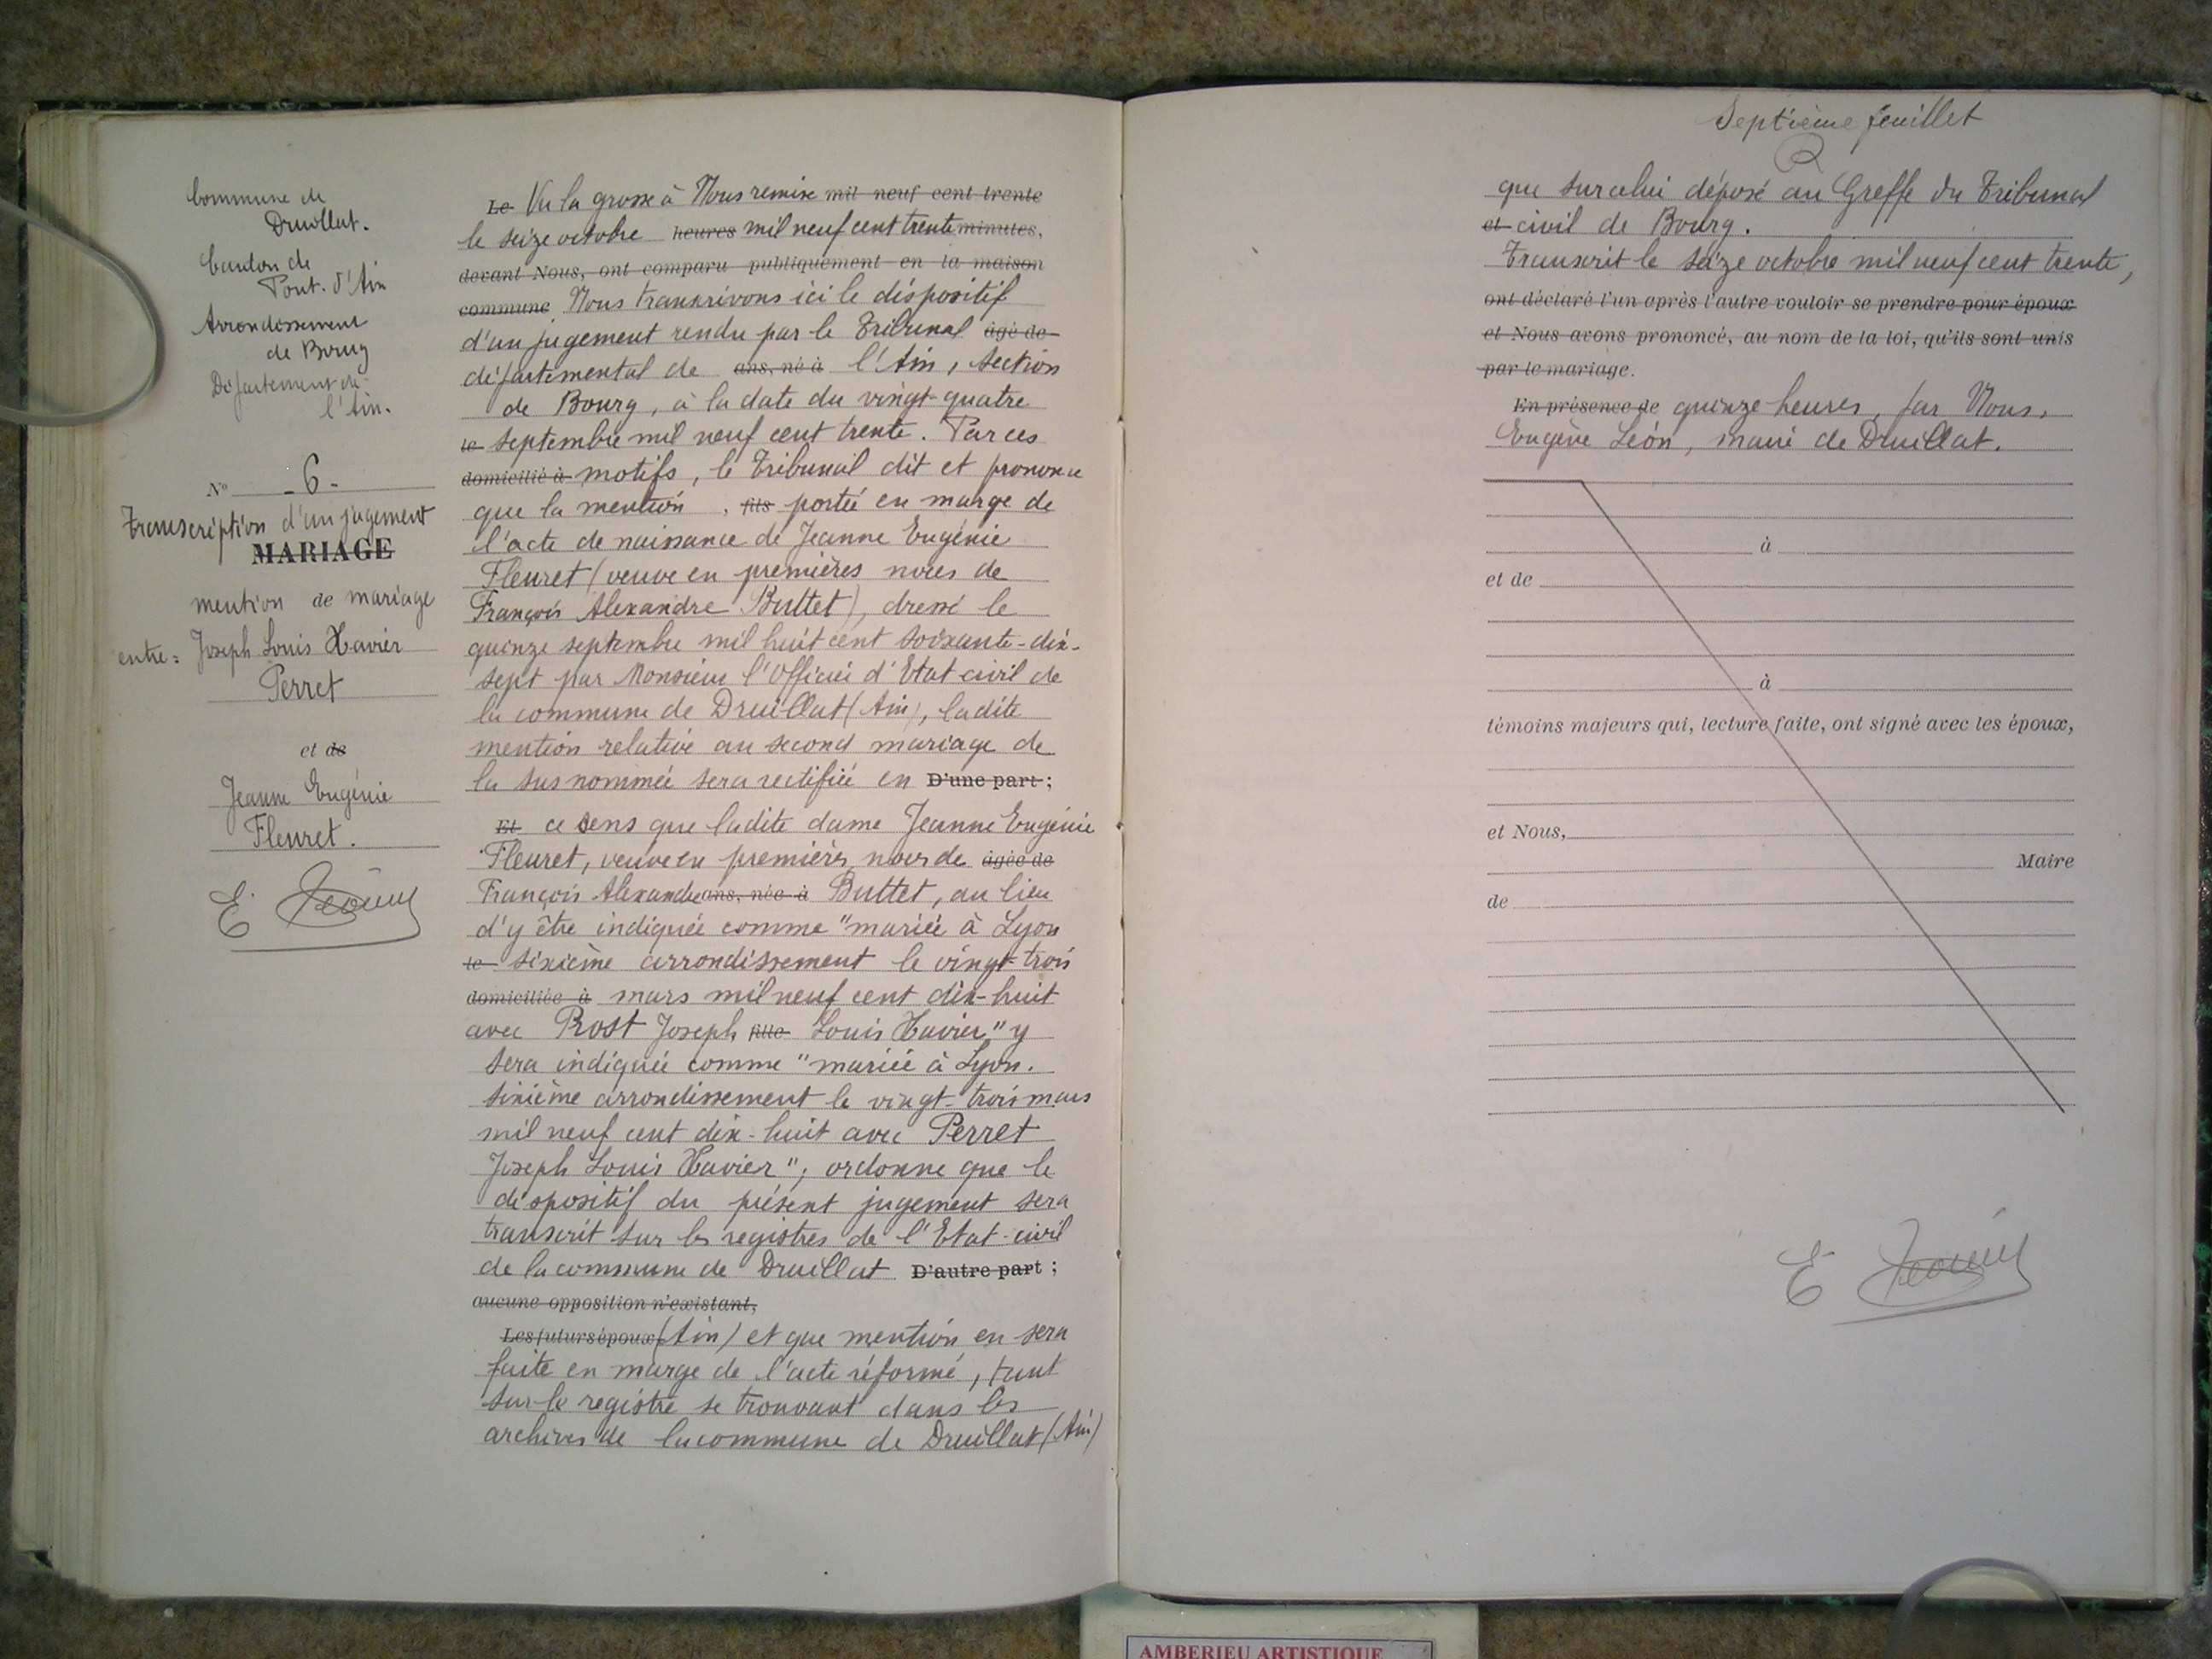 Commune de
Druillat.
Canton de
Pont-d'Ain
Arrondissement
de Bourg
Département de
l'Ain.
N° - 6 -
Transcription d'un jugement
MARIAGE
mention de mariage
entre = Joseph Louis Xavier
Perret
et de
Jeanne Eugénie
Fleuret.
Le Vu la grosse à Nous remise mil neuf cent trente
le seize octobre heures mil neuf cent trente minutes,
devant Nous, ont comparu publiquement en la maison
commune Nous transcrivons ici le dispositif
d'un jugement rendu par le Tribunal âgé de
départemental de ans, né à l'Ain, section
de Bourg, à la date du vingt-quatre
le septembre mil neuf cent trente. Par ces
domicilié à motifs, le Tribunal dit et prononce
que la mention, fils portée en marge de
l'acte de naissance de Jeanne Eugénie
Fleuret (veuve en premières noces de
François Alexandre Buttet), dressé le
quinze septembre mil huit cent soixante-dix-
sept par Monsieur l'Officier d'Etat civil de
la commune de Druillat (Ain), ladite
mention relative au second mariage de
la susnommée sera rectifiée en D'une part ;
Et ce sens que ladite dame Jeanne Eugénie
Fleuret, veuve en premières noces de âgée de
François Alexandre ans, née à Buttet, au lieu
d'y être indiquée comme "mariée à Lyon
le sixième arrondissement le vingt-trois
domiciliée à mars mil neuf cent dix-huit
avec Prost Joseph fille Louis Xavier" y
sera indiquée comme "mariée à Lyon.
sixième arrondissement le vingt-trois mars
mil neuf cent dix-huit avec Perret
Joseph Louis Xavier"; ordonne que le
dispositif du présent jugement sera
transcrit sur les registres de l'Etat-civil
de la commune de Druillat D'autre part ;
aucune opposition n'existant,
Les futurs époux (Ain) et que mention en sera
faite en marge de l'acte réformé, tant
sur le registre se trouvant dans les
archives de la commune de Druillat (Ain)
Septième feuillet
que sur celui déposé au Greffe du Tribunal
et civil de Bourg.
Transcrit le seize octobre mil neuf cent trente,
ont déclaré l'un après l'autre vouloir se prendre pour époux
et Nous avons prononcé, au nom de la loi, qu'ils sont unis
par le mariage.
En présence de quinze heures, par Nous,
Eugène Léon, maire de Druillat.
à
et de
à
témoins majeurs qui, lecture faite, ont signé avec les époux,
et Nous,
Maire
de
AMBERIEU ARTISTIQUE